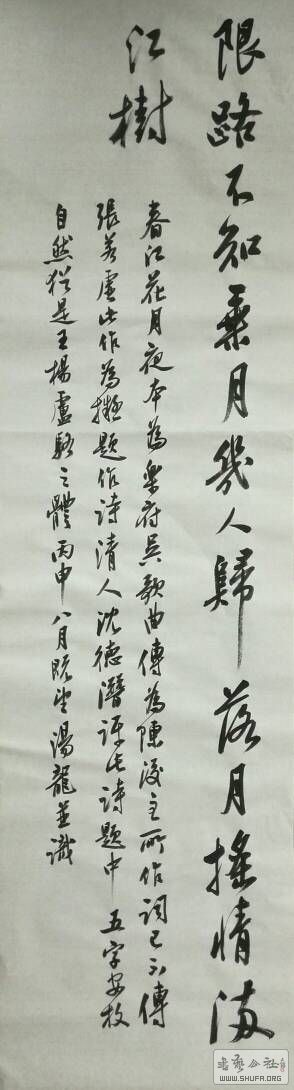 限路不知乘月幾人歸落月搖情滿
江樹
春江花月夜本為樂府吳歌曲傳為陳後主所作詞已不傳
張若虛此作為擬題作詩清人沈德潛評此詩題中五字安放
自然猶是王楊盧駱之體丙申八月既望湯龍並識
WWW.SHUFA.ORG